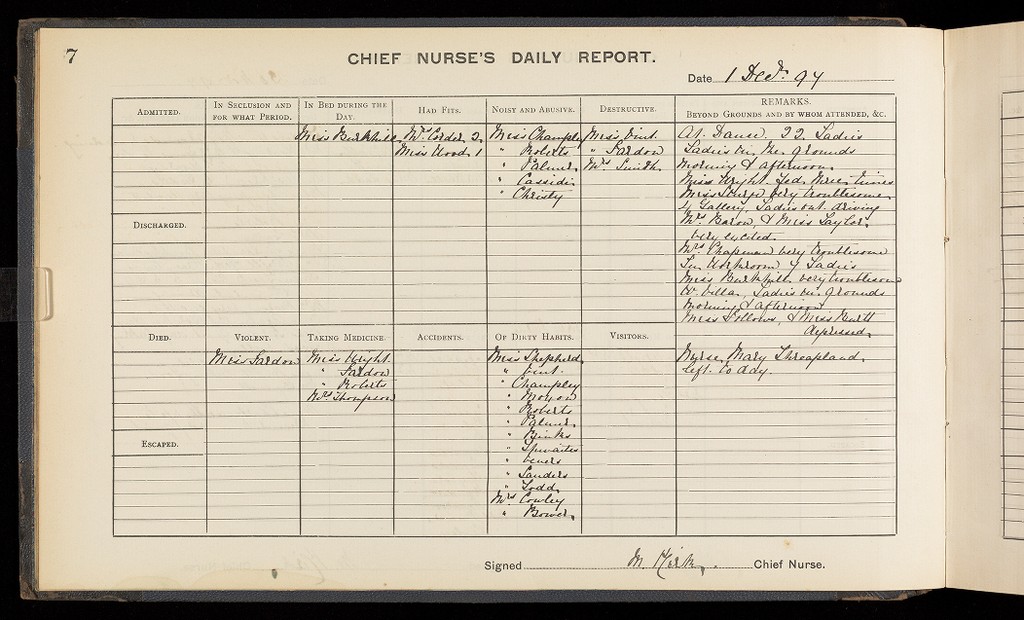 7
CHIEF NURSE'S DAILY REPORT.
Date 1 Decr. 94
ADMITTED.
IN SECLUSION AND FOR WHAT PERIOD.
IN BED DURING THE DAY.
Miss Burkhill
HAD FITS.
Mrs. Corder 2.
Miss Wood. 1
NOISY AND ABUSIVE.
Miss Champley
" Roberts
" Palmer
" Cassidi
" Christy
DESTRUCTIVE.
Miss Vint.
" Sardon
Mrs. Smith.
REMARKS.
BEYOND GROUNDS AND BY WHOM ATTENDED, &C.
At Dance. 22 Ladies
Ladies in the grounds
morning & afternoon.
Miss Wright. Fed three times
Miss very troublesome
Gallery, Ladies out driving
Mrs. Baron, & Miss Taylor,
very excited.
Mrs Chapman very troublesome
In Workroom 4 Ladies
Miss Burkhill very troublesome
W. Villa, Ladies in grounds
morning & afternoon
Miss Follows, & Miss
depressed.
DISCHARGED.
DIED.
VIOLENT.
Miss Sardon
TAKING MEDICINE.
Miss Wright.
" Sardon
" Roberts
Mrs. Thompson
ACCIDENTS.
OF DIRTY HABITS.
Miss Shepherd
" Vint.
" Champley
" Moxon
" Roberts
" Palmer
" Binks
" Thwaites
" Veners
" Sanders
" Todd
Mrs Cowley
" Bower.
VISITORS.
Nurse Mary Threapland.
left to day.
ESCAPED.
Signed M. Kirk. Chief Nurse.